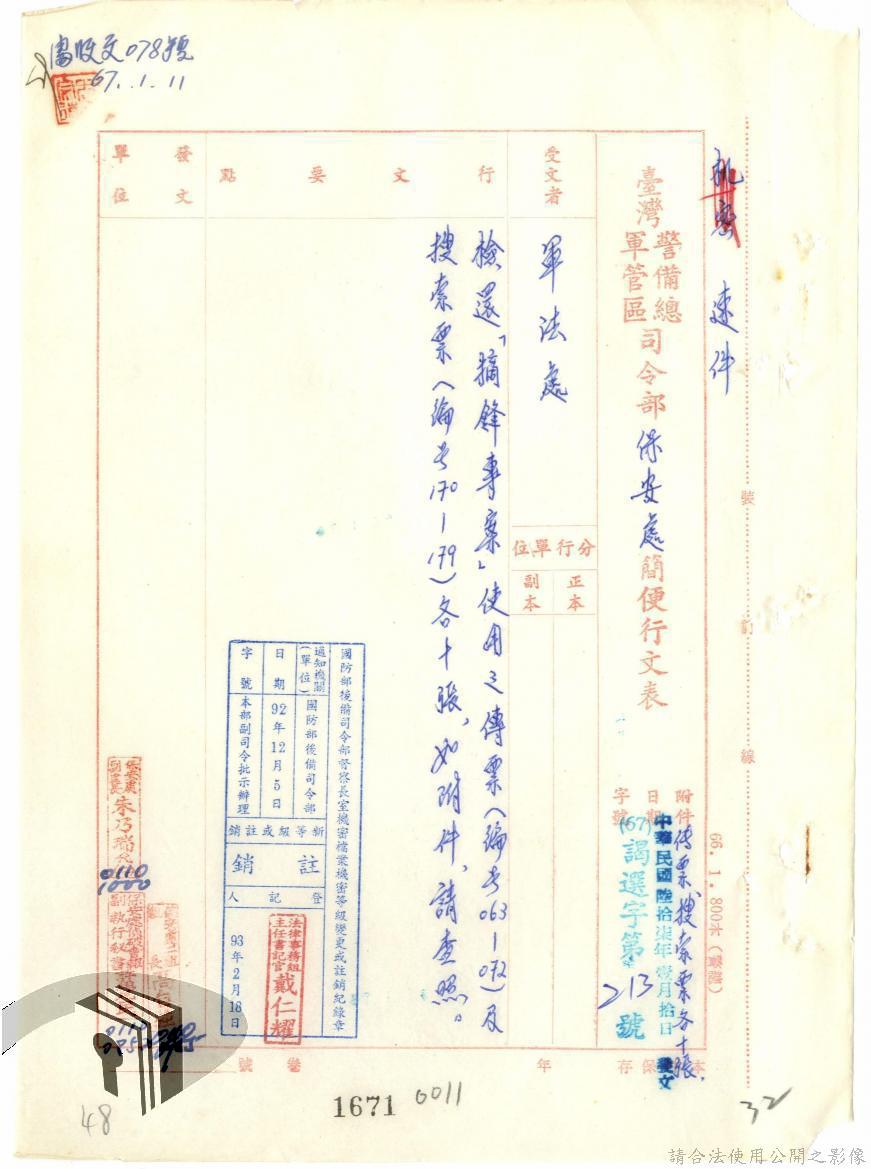 寓收文078號
67.1.11
机密 速件
裝訂線
臺灣警備總軍管區司令部保安處簡便行文表
66.1.800本(聯謄)
附件 傳票、搜索票各十張.
日期 中華民國陸拾柒年壹月拾日 發文
字號 (67)謁選字第213號
受文者
軍法處
分行單位
正本
副本
行文要點
檢還「摘鋒專案」使用之傳票(編号063—072)及
搜索票(編号170—179)各十張,如附件,請查照。
發文單位
國防部後備司令部督察長室機密檔案機密等級變更或註銷紀錄章
通知機關(單位) 國防部後備司令部
日期 92年12月5日
字號 本部副司令批示辦理
新等級或註銷
註銷
登記人
法律事務組
主任書記官 戴仁耀
93年2月18日
保安處
副處長 朱乃瑞代
0110
1000
副執行秘書
0110
本保存 年
號 卷
1671
0011
48
32
請合法使用公開之影像